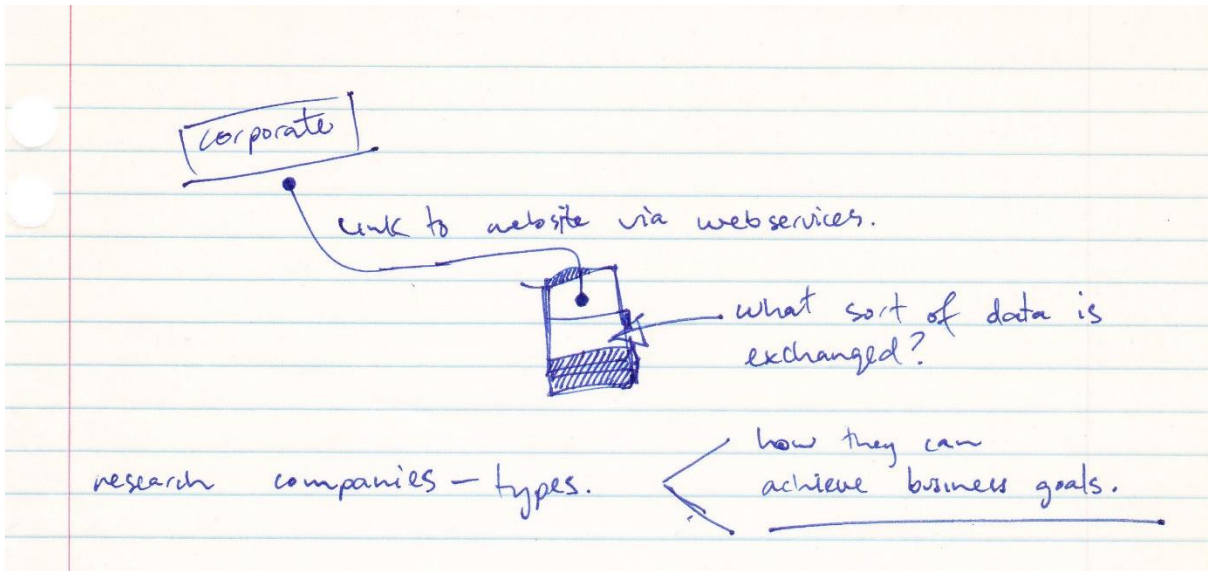 corporate
link to website via webservices.
what sort of data is
exchanged?
how they can
research companies – types.
achieve business goals.